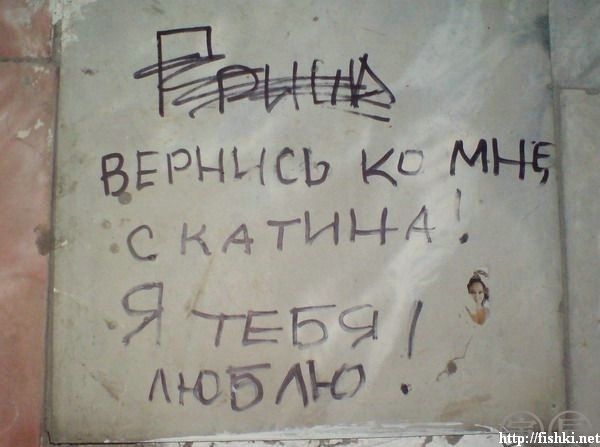 Гриша
ВЕРНИСЬ КО МНЕ,
СКАТИНА!
Я ТЕБЯ
ЛЮБЛЮ!
http://fishki.net